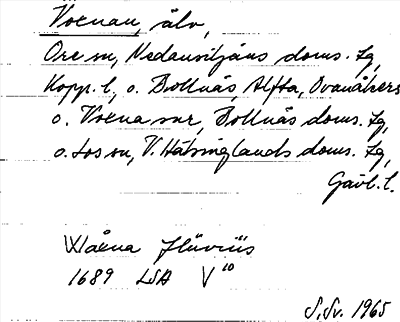 Voxnan, älv,
Ore sn, Nedansiljans doms. lg,
Kopp. l., o. Bollnäs, Alfta, Ovanåkers
o. Voxna snr, Bollnäs doms. lg,
o. Los sn, V. Hälsinglands doms. lg,
Gävl. l.
Wåxna Fluviüs
1689 LSA V 10
S.Sv. 1965